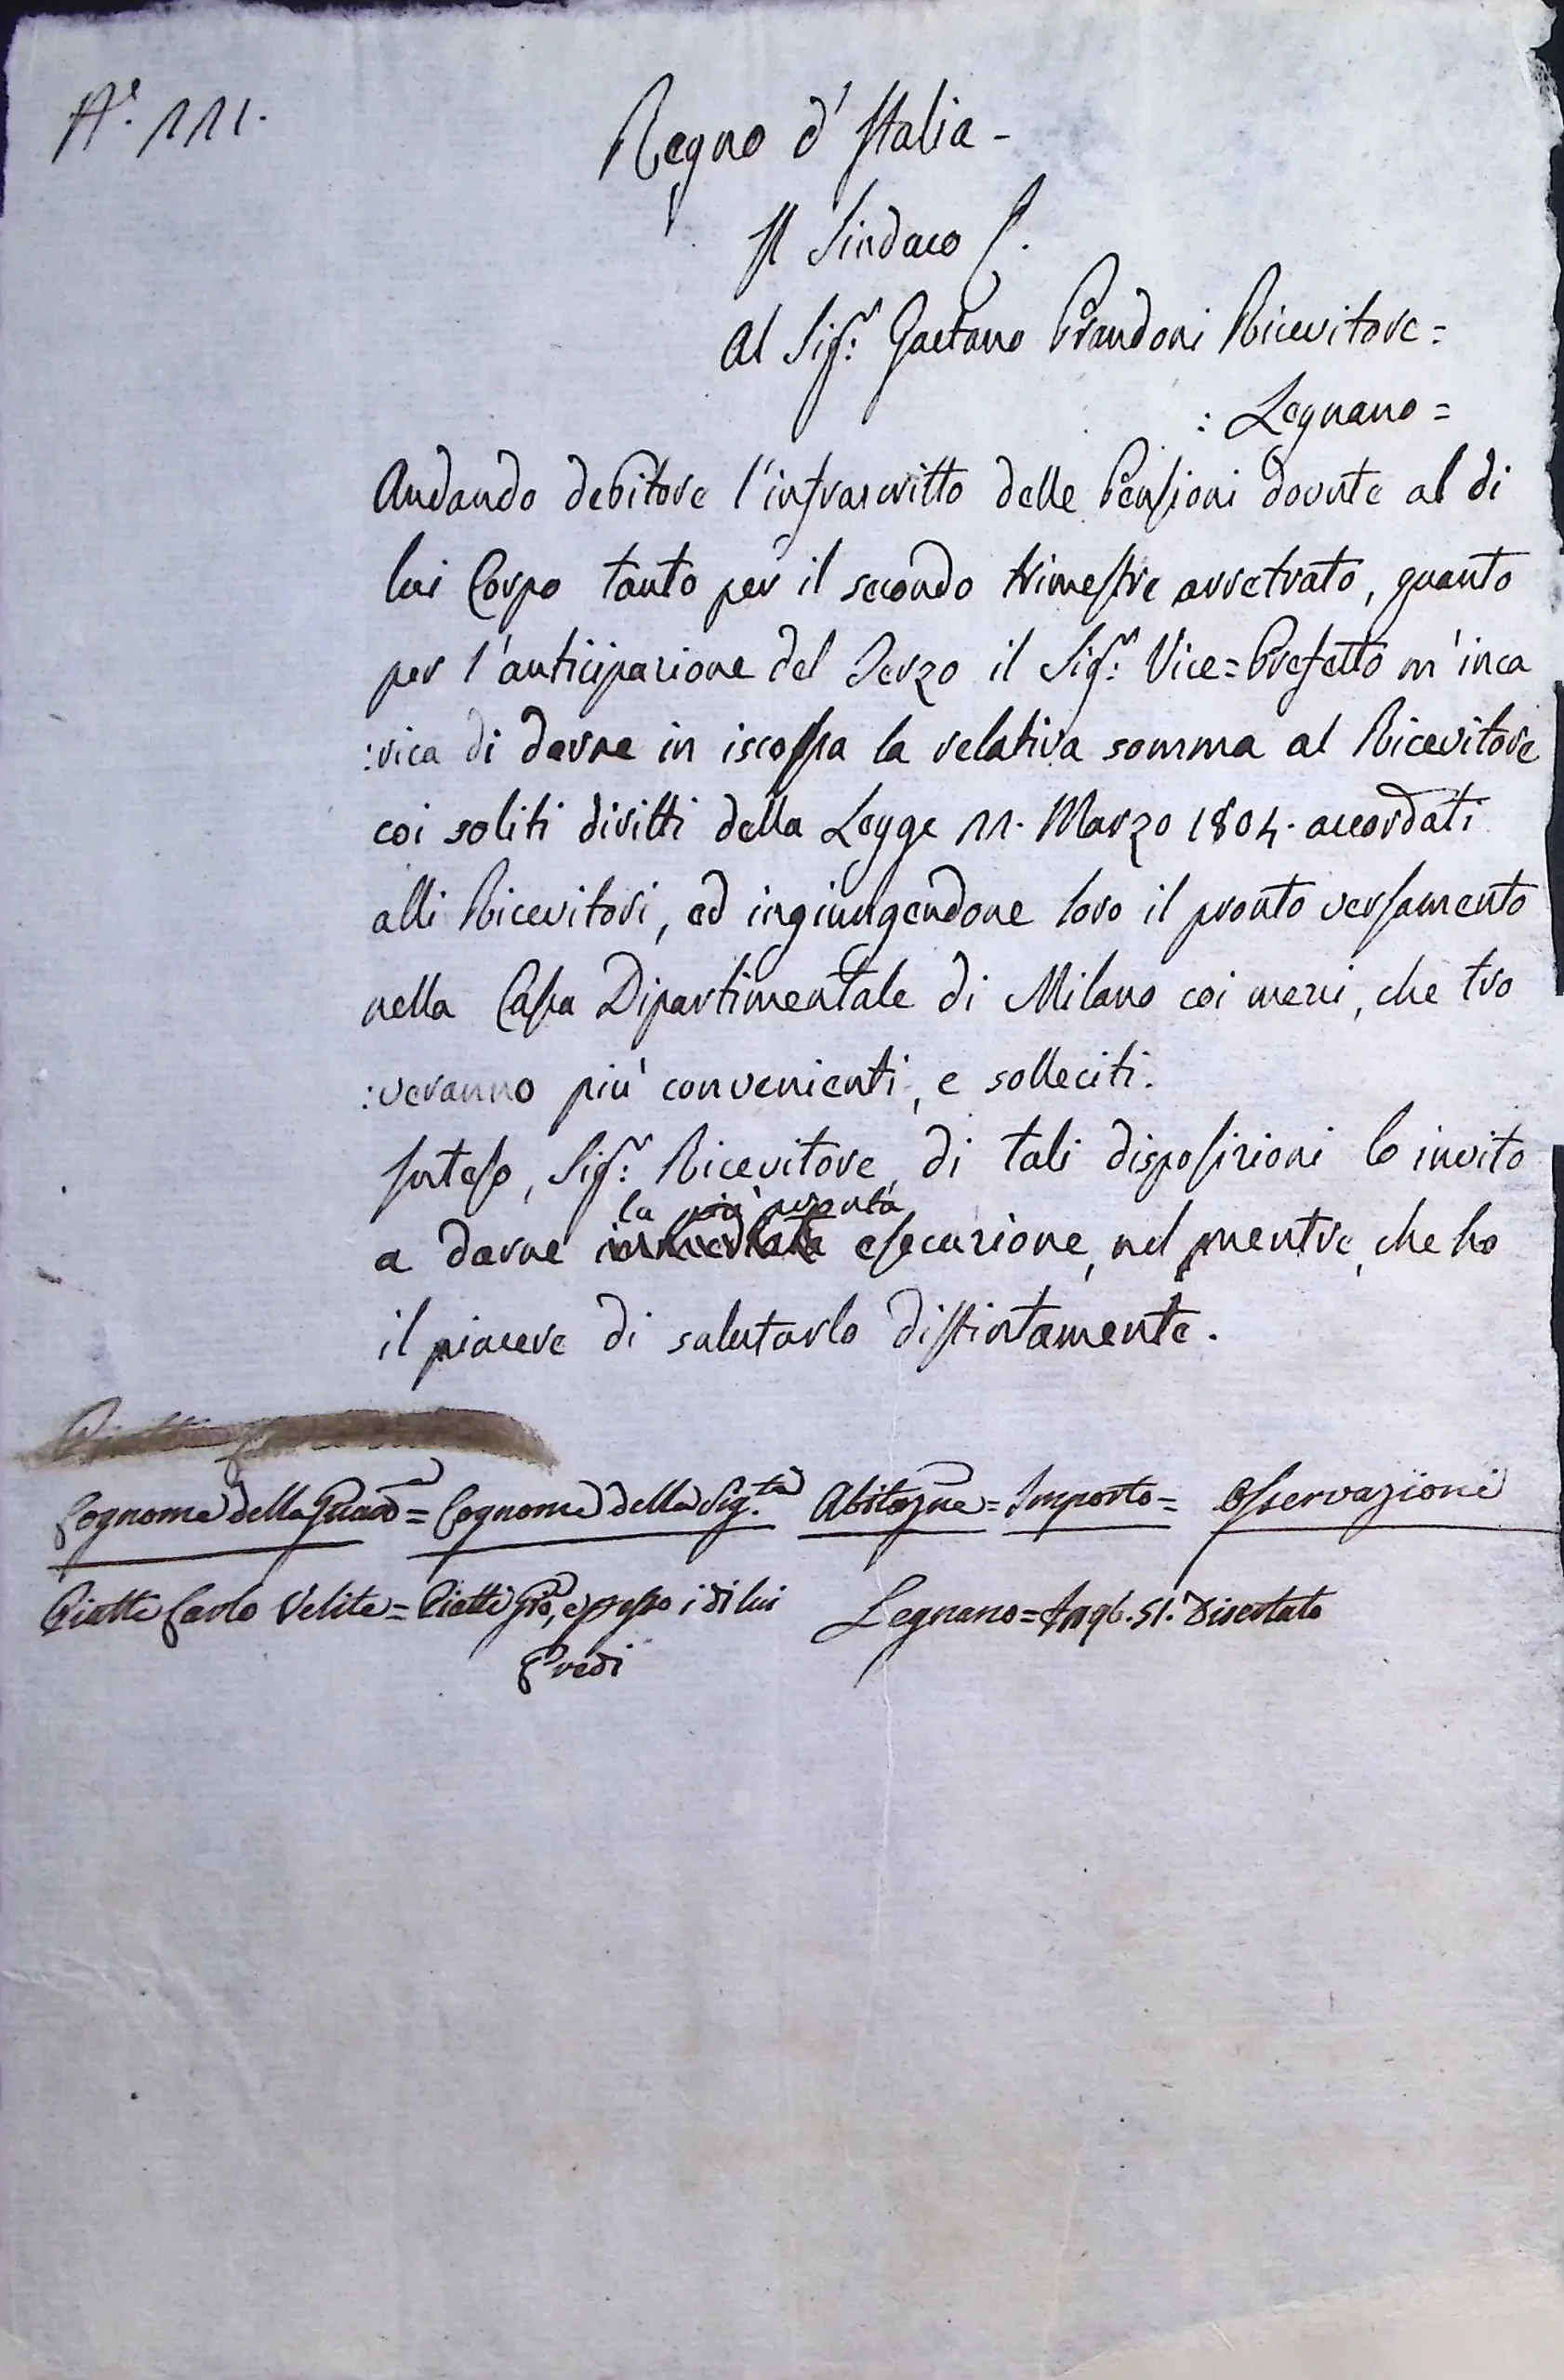 N.° 111.
Regno d'Italia -
Il Sindaco P.
Al Sig.r Gaetano Prandoni Ricevitore =
: Legnano =
Andando debitore l'infrascritto delle Pensioni dovute al di
lui Corpo tanto per il secondo trimestre arretrato, quanto
per l'anticipazione del Terzo il Sig.r Vice=Prefetto m'inca
:rica di darne in iscossa la relativa somma al Ricevitore
coi soliti diritti della Legge 11. Marzo 1804. accordati
alli Ricevitori, ed ingiungendone loro il pronto versamento
nella Cassa Dipartimentale di Milano coi mezzi, che tro
:veranno più convenienti, e solleciti.
Inteso, Sig.r Ricevitore, di tali disposizioni lo invito
la più pronta
a darne immediata esecuzione, nel mentre, che ho
il piacere di salutarlo distintamente.
Cognome della Guard.a = Cognome della Sig.tà Abitaz.ne = Importo = Osservazioni
Piatti Carlo Velite = Piatti Gio, e presso i di lui Legnano = 96.51. Disertato
Eredi